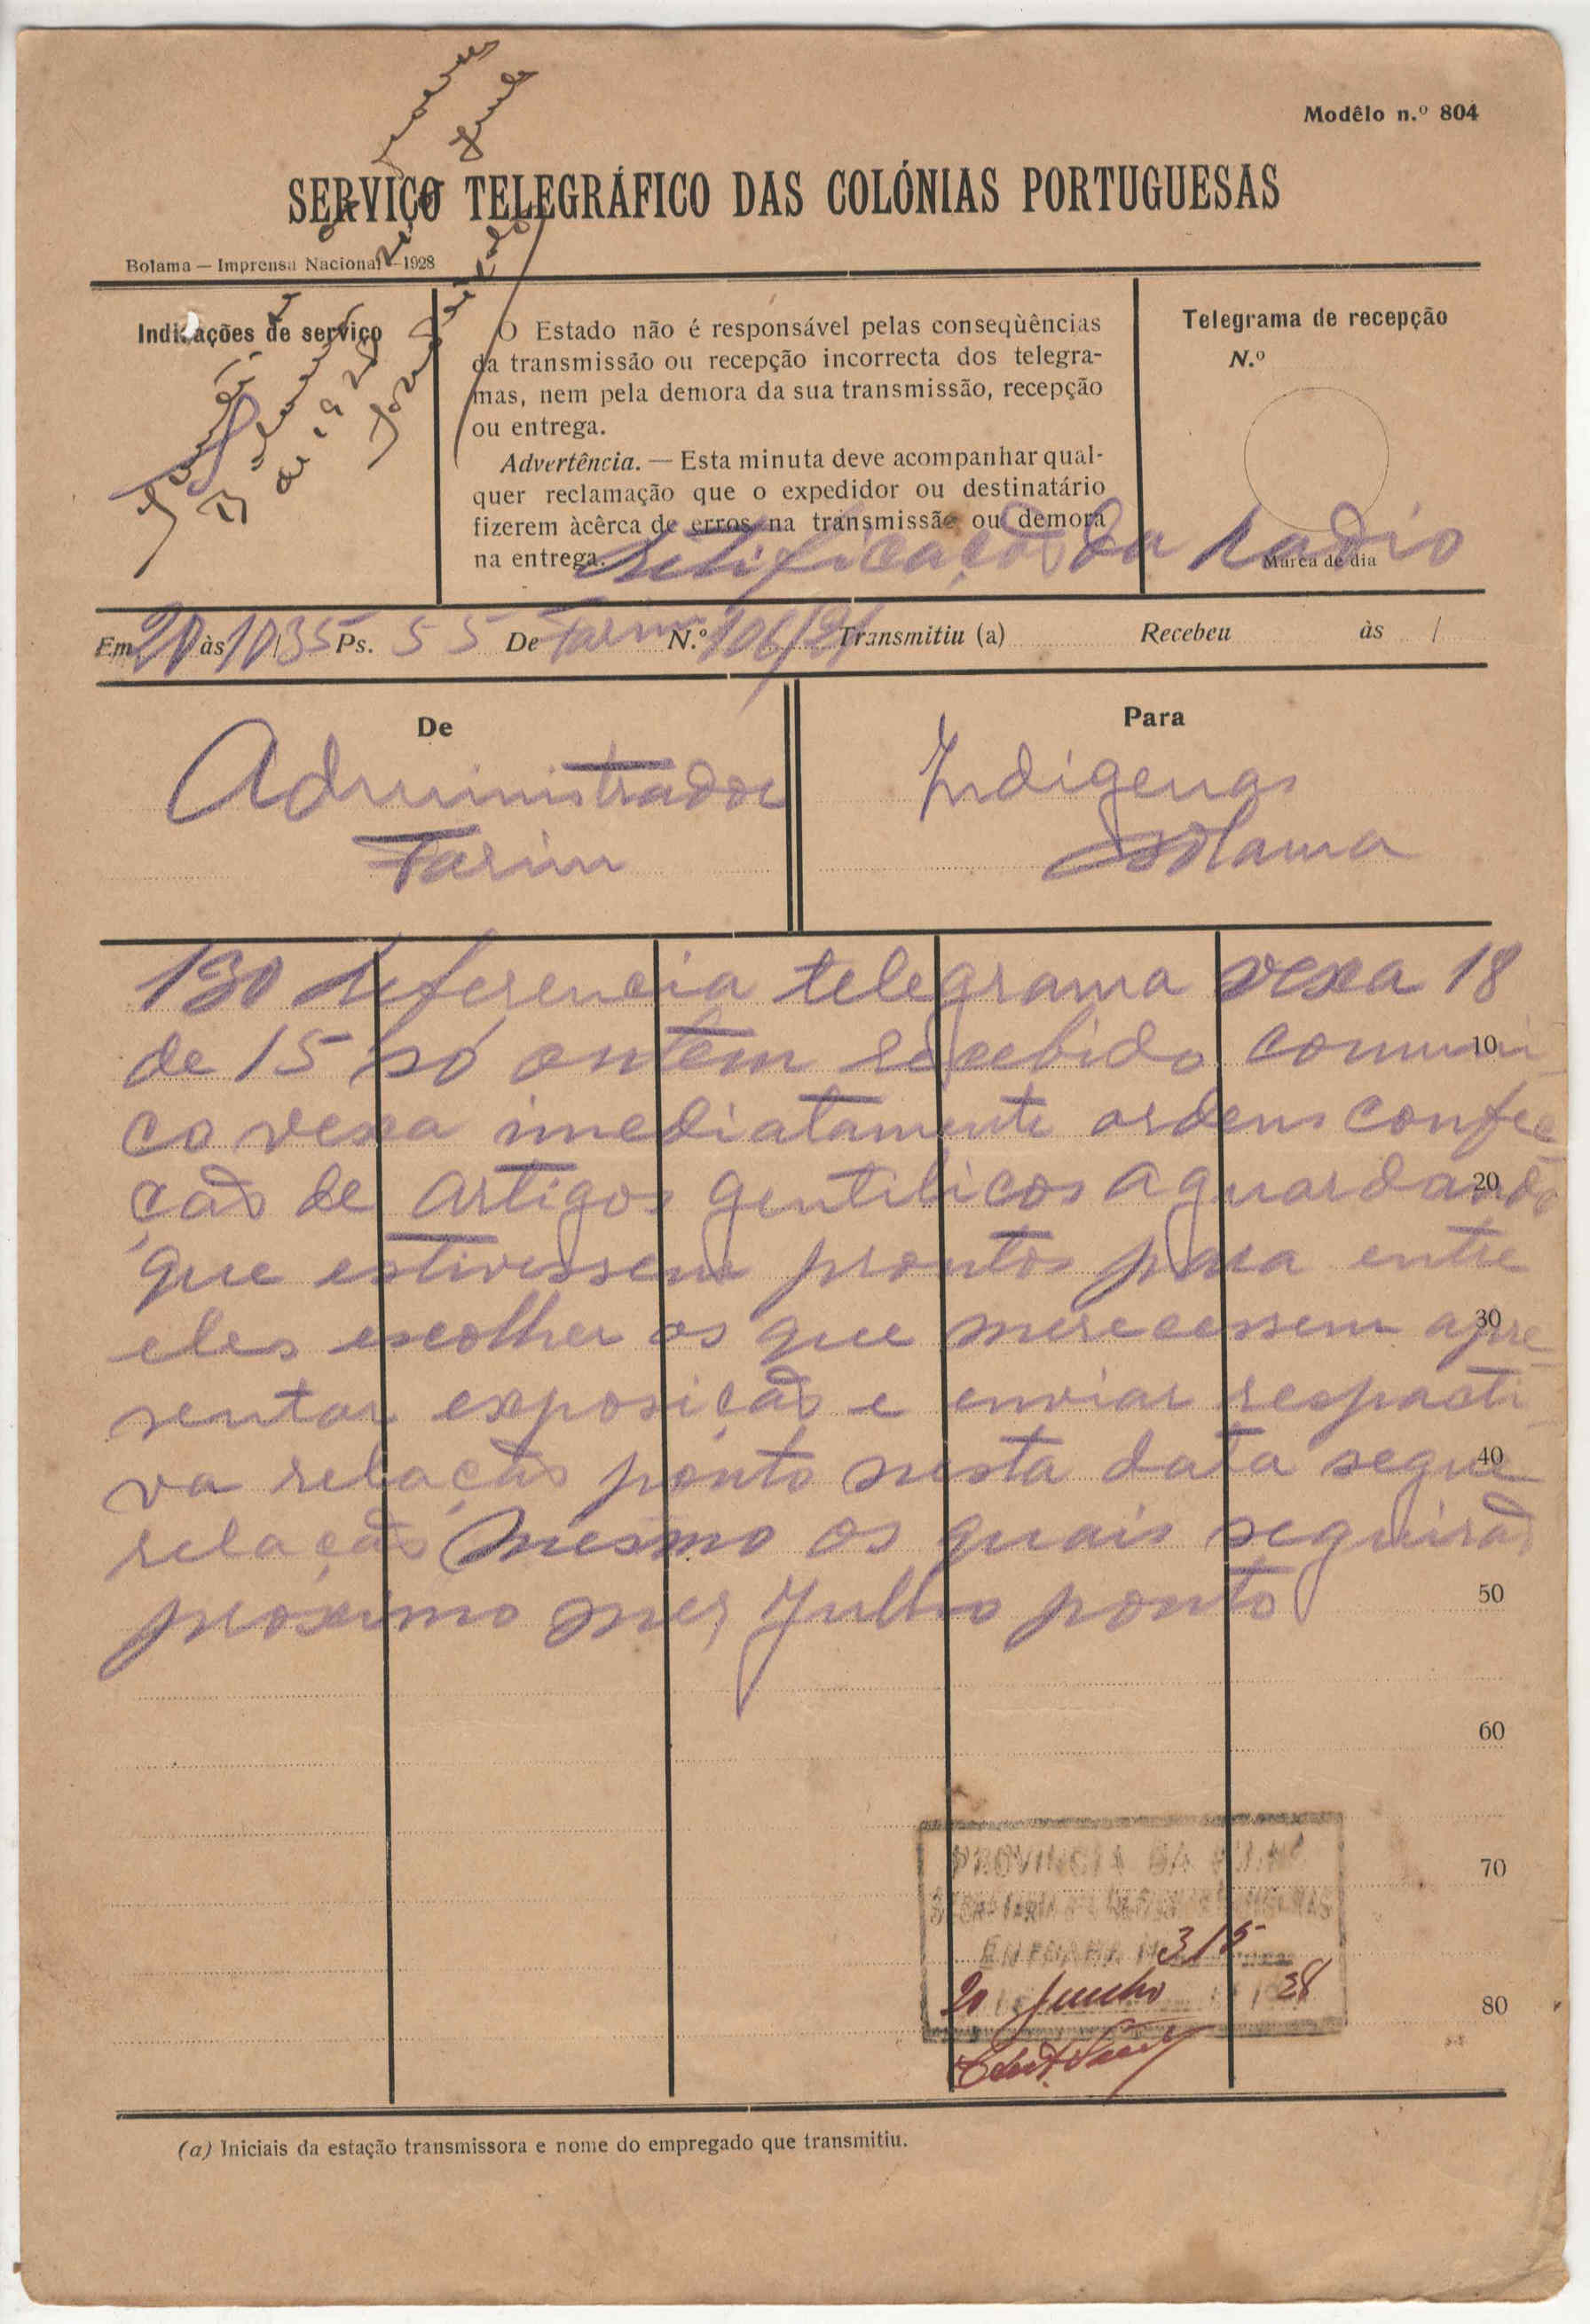 Modêlo n.º 804
SERVIÇO TELEGRÁFICO DAS COLÓNIAS PORTUGUESAS
Bolama — Imprensa Nacional — 1928
Indicações de serviço
O Estado não é responsável pelas conseqùências
da transmissão ou recepção incorrecta dos telegra-
mas, nem pela demora da sua transmissão, recepção
ou entrega.
Advertência. — Esta minuta deve acompanhar qual-
quer reclamação que o expedidor ou destinatário
fizerem àcêrca de erros na transmissão ou demora
na entrega.
Telegrama de recepção
N.º
Marca de dia
retificação da radio
Em 20 às 10/35 Ps. 55 De Farim N.º 106/21 Transmitiu (a) Recebeu às /
De
Administrador
Farim
Para
Indigenas
Bolama
130 referencia telegrama vexa 18
de 15 só ontem recebido comuni- 10
co vexa imediatamente ordens confec
ção de artigos gentilicos aguardando 20
que estivessem prontos para entre
eles escolher os que merecessem apre 30
sentar exposição e enviar respecti
va relação ponto nesta data segue 40
relação mesmo os quais seguirão
proximo mes Julho ponto 50
60
70
80
PROVINCIA DA GUINÉ
ENTRADA N.º 315
20 Junho 28
(a) Iniciais da estação transmissora e nome do empregado que transmitiu.